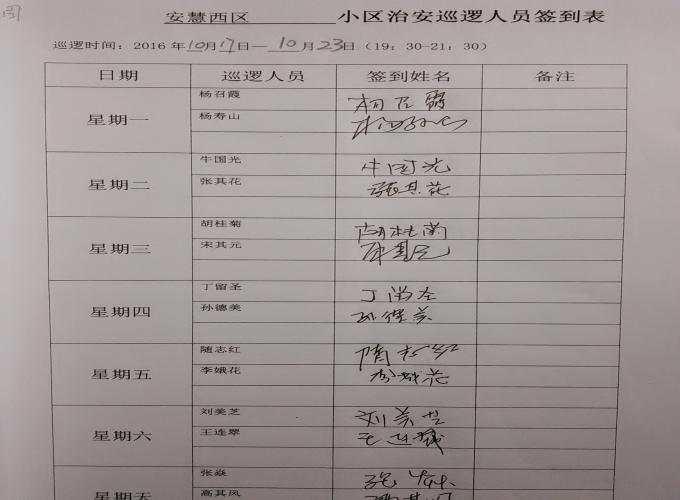 安慧西区 小区治安巡逻人员签到表
巡逻时间：2016年10月17日—10月23日（19：30-21：30）
日期 巡逻人员 签到姓名 备注
星期一 杨召霞
杨寿山
星期二 牛国光 牛国光
张其花 张其花
星期三 胡桂菊 胡桂菊
宋其元 宋其元
星期四 丁留圣 丁留圣
孙德美 孙德美
星期五 随志红 隋志红
李娥花 李娥花
星期六 刘美芝 刘美芝
王连翠 王连翠
星期天 张焱
高其凤